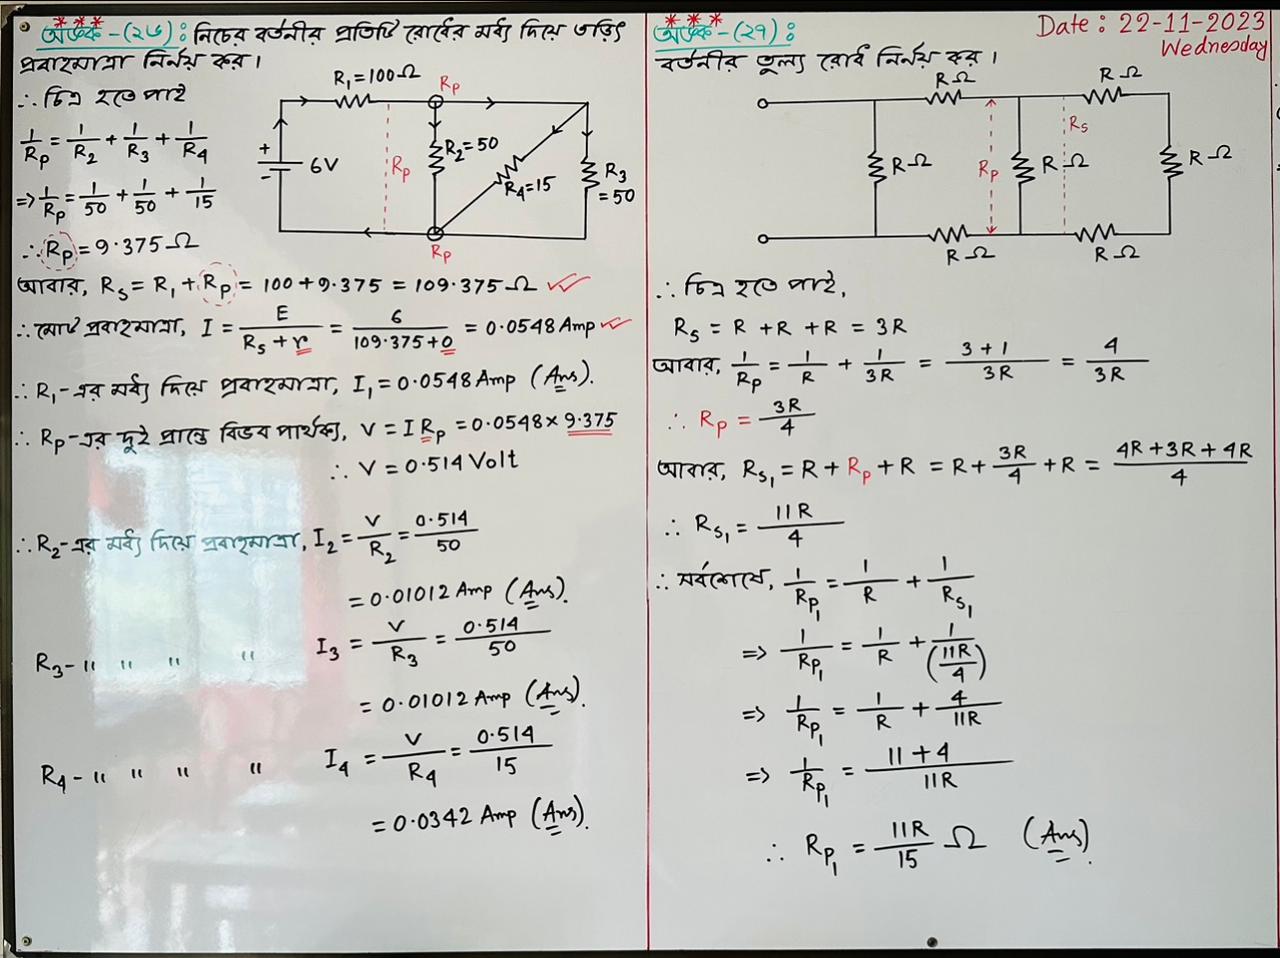 *** অংক-(২৬): নিচের বর্তনীর প্রতিটি রোধের মধ্য দিয়ে তড়িৎ
প্রবাহমাত্রা নির্নয় কর।
∴ চিত্র হতে পাই
1/Rp = 1/R2 + 1/R3 + 1/R4
=> 1/Rp = 1/50 + 1/50 + 1/15
∴ Rp = 9.375 Ω
R1 = 100 Ω
Rp
+
-
6V
Rp
R2 = 50
R4 = 15
R3 = 50
Rp
আবার, Rs = R1 + Rp = 100 + 9.375 = 109.375 Ω
∴ মোট প্রবাহমাত্রা, I = E/(Rs + r) = 6/(109.375+0) = 0.0548 Amp
∴ R1-এর মধ্য দিয়ে প্রবাহমাত্রা, I1 = 0.0548 Amp (Ans).
∴ Rp-এর দুই প্রান্তে বিভব পার্থক্য, V = I Rp = 0.0548 × 9.375
∴ V = 0.514 Volt
∴ R2-এর মধ্য দিয়ে প্রবাহমাত্রা, I2 = V/R2 = 0.514/50
= 0.01012 Amp (Ans).
R3- " " " " I3 = V/R3 = 0.514/50
= 0.01012 Amp (Ans).
R4- " " " " I4 = V/R4 = 0.514/15
= 0.0342 Amp (Ans).
*** অংক-(২৭):
Date: 22-11-2023
Wednesday
বর্তনীর তুল্য রোধ নির্নয় কর।
R Ω
R Ω
R Ω
Rp
R Ω
Rs
R Ω
R Ω
R Ω
∴ চিত্র হতে পাই,
Rs = R + R + R = 3R
আবার, 1/Rp = 1/R + 1/3R = (3+1)/3R = 4/3R
∴ Rp = 3R/4
আবার, Rs1 = R + Rp + R = R + 3R/4 + R = (4R+3R+4R)/4
∴ Rs1 = 11R/4
∴ সর্বশেষে, 1/Rp1 = 1/R + 1/Rs1
=> 1/Rp1 = 1/R + 1/(11R/4)
=> 1/Rp1 = 1/R + 4/11R
=> 1/Rp1 = (11+4)/11R
∴ Rp1 = 11R/15 Ω (Ans).